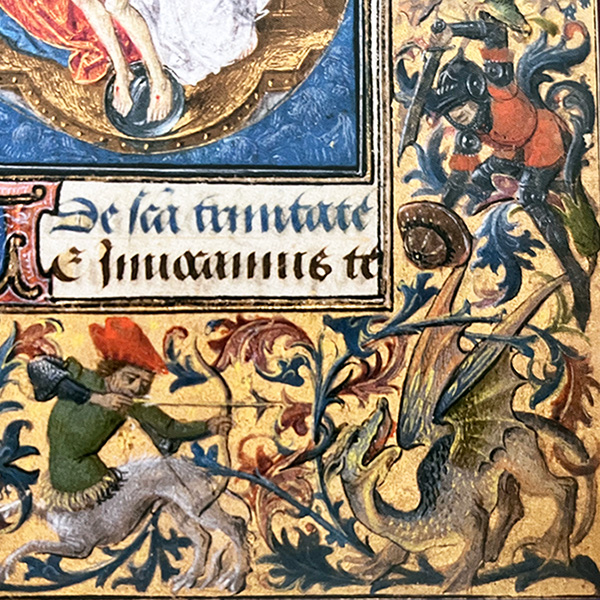 De scā trinitate
E Inuocamus te